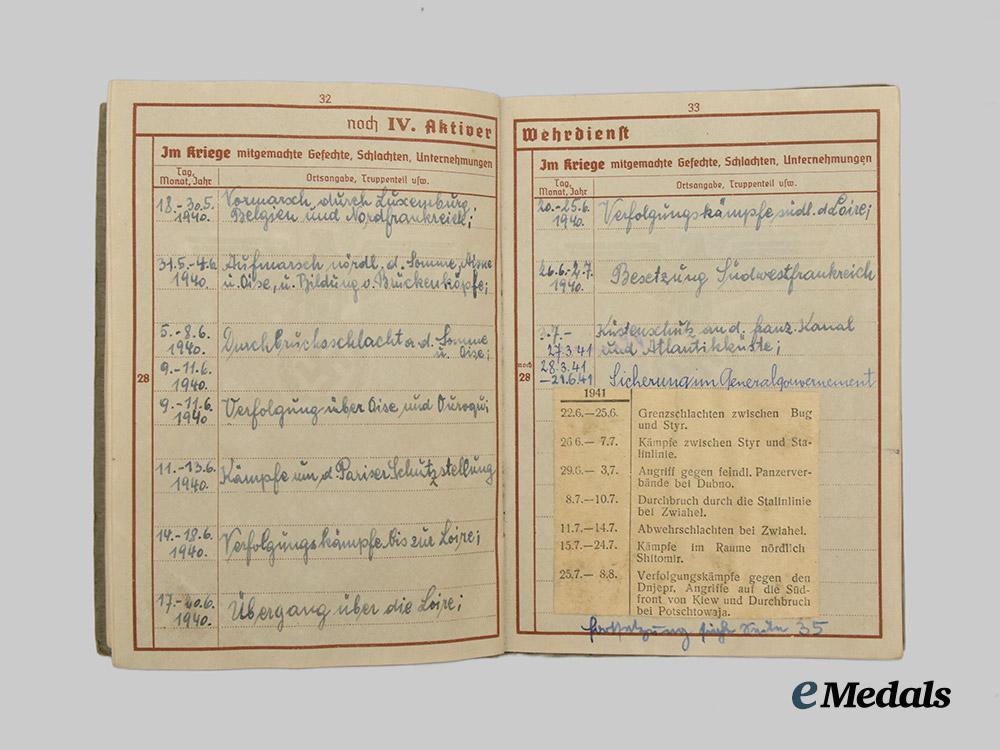 32
noch IV. Aktiver
Im Kriege mitgemachte Gefechte, Schlachten, Unternehmungen
Tag, Monat, Jahr
Ortsangabe, Truppenteil usw.
18.-30.5. 1940.
Vormarsch durch Luxemburg,
Belgien und Nordfrankreich;
31.5.-4.6. 1940.
Aufmarsch nördl. d. Somme, Aisne
u. Oise, u. Bildung v. Brückenköpfe;
5.-8.6. 1940.
Durchbruchsschlacht a. d. Somme
u. Oise;
9.-11.6. 1940.
28
9.-11.6. 1940
Verfolgung über Oise und Ourcq;
11.-13.6. 1940.
Kämpfe um d. Pariser Schutzstellung
14.-18.6. 1940.
Verfolgungskämpfe bis zur Loire;
17.-20.6. 1940.
Übergang über die Loire;
33
Wehrdienst
Im Kriege mitgemachte Gefechte, Schlachten, Unternehmungen
Tag, Monat, Jahr
Ortsangabe, Truppenteil usw.
20.-25.6. 1940.
Verfolgungskämpfe südl. d. Loire;
26.6.-2.7. 1940.
Besetzung Südwestfrankreich
3.7.- 27.3.41
Küstenschutz an d. franz. Kanal
und Atlantikküste;
noch 28
28.3.41 -21.6.41
Sicherung im Generalgouvernement
1941
22.6.—25.6. Grenzschlachten zwischen Bug
und Styr.
26 6.— 7.7. Kämpfe zwischen Styr und Sta-
linlinie.
29.6.— 3.7. Angriff gegen feindl. Panzerver-
bände bei Dubno.
8.7.—10.7. Durchbruch durch die Stalinlinie
bei Zwiahel.
11.7.—14.7. Abwehrschlachten bei Zwiahel.
15.7.—24.7. Kämpfe im Raume nördlich
Shitomir.
25.7.— 8.8. Verfolgungskämpfe gegen den
Dnjepr. Angriffe auf die Süd-
front von Kiew und Durchbruch
bei Potschtowaja.
Fortsetzung siehe Seite 35
eMedals